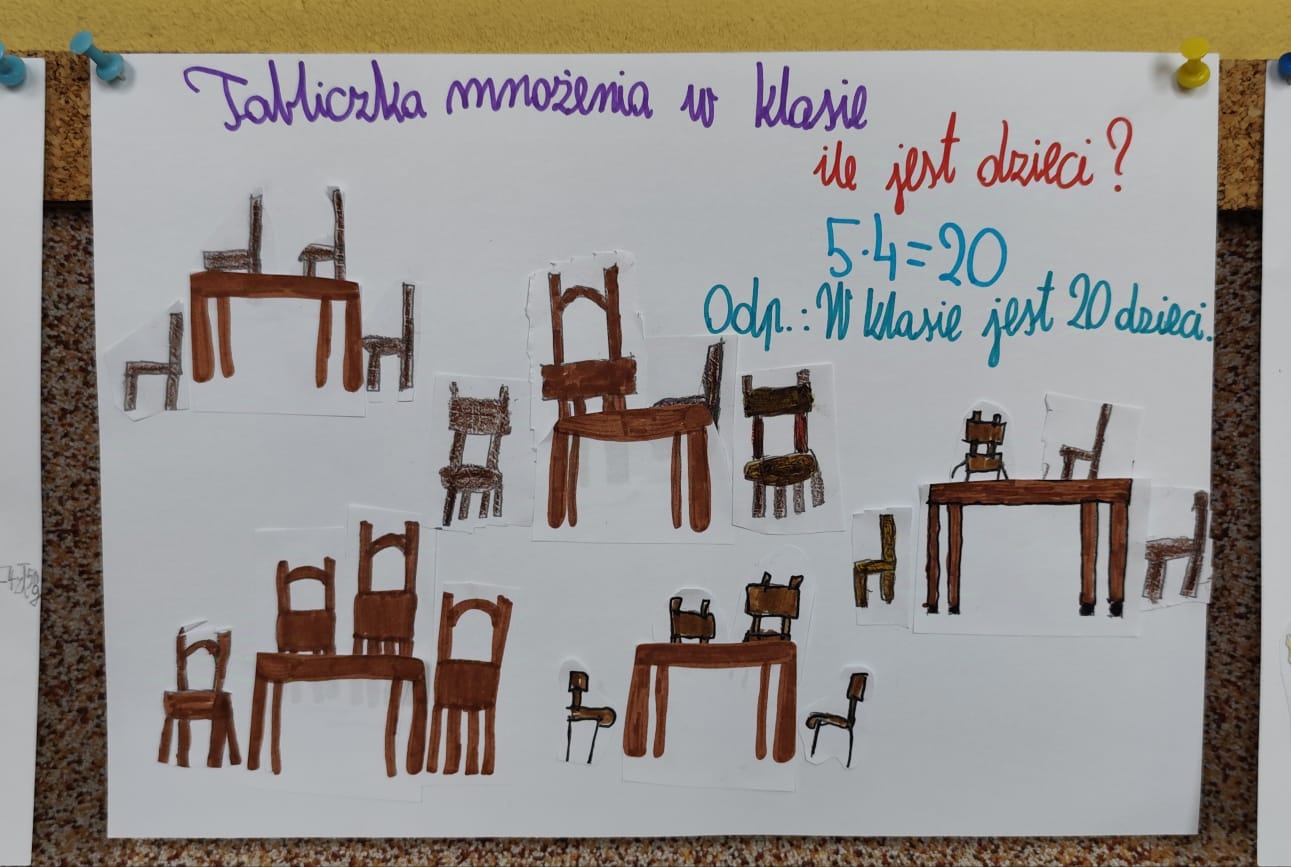 Tabliczka mnożenia w klasie
ile jest dzieci?
5·4=20
Odp.: W klasie jest 20 dzieci.